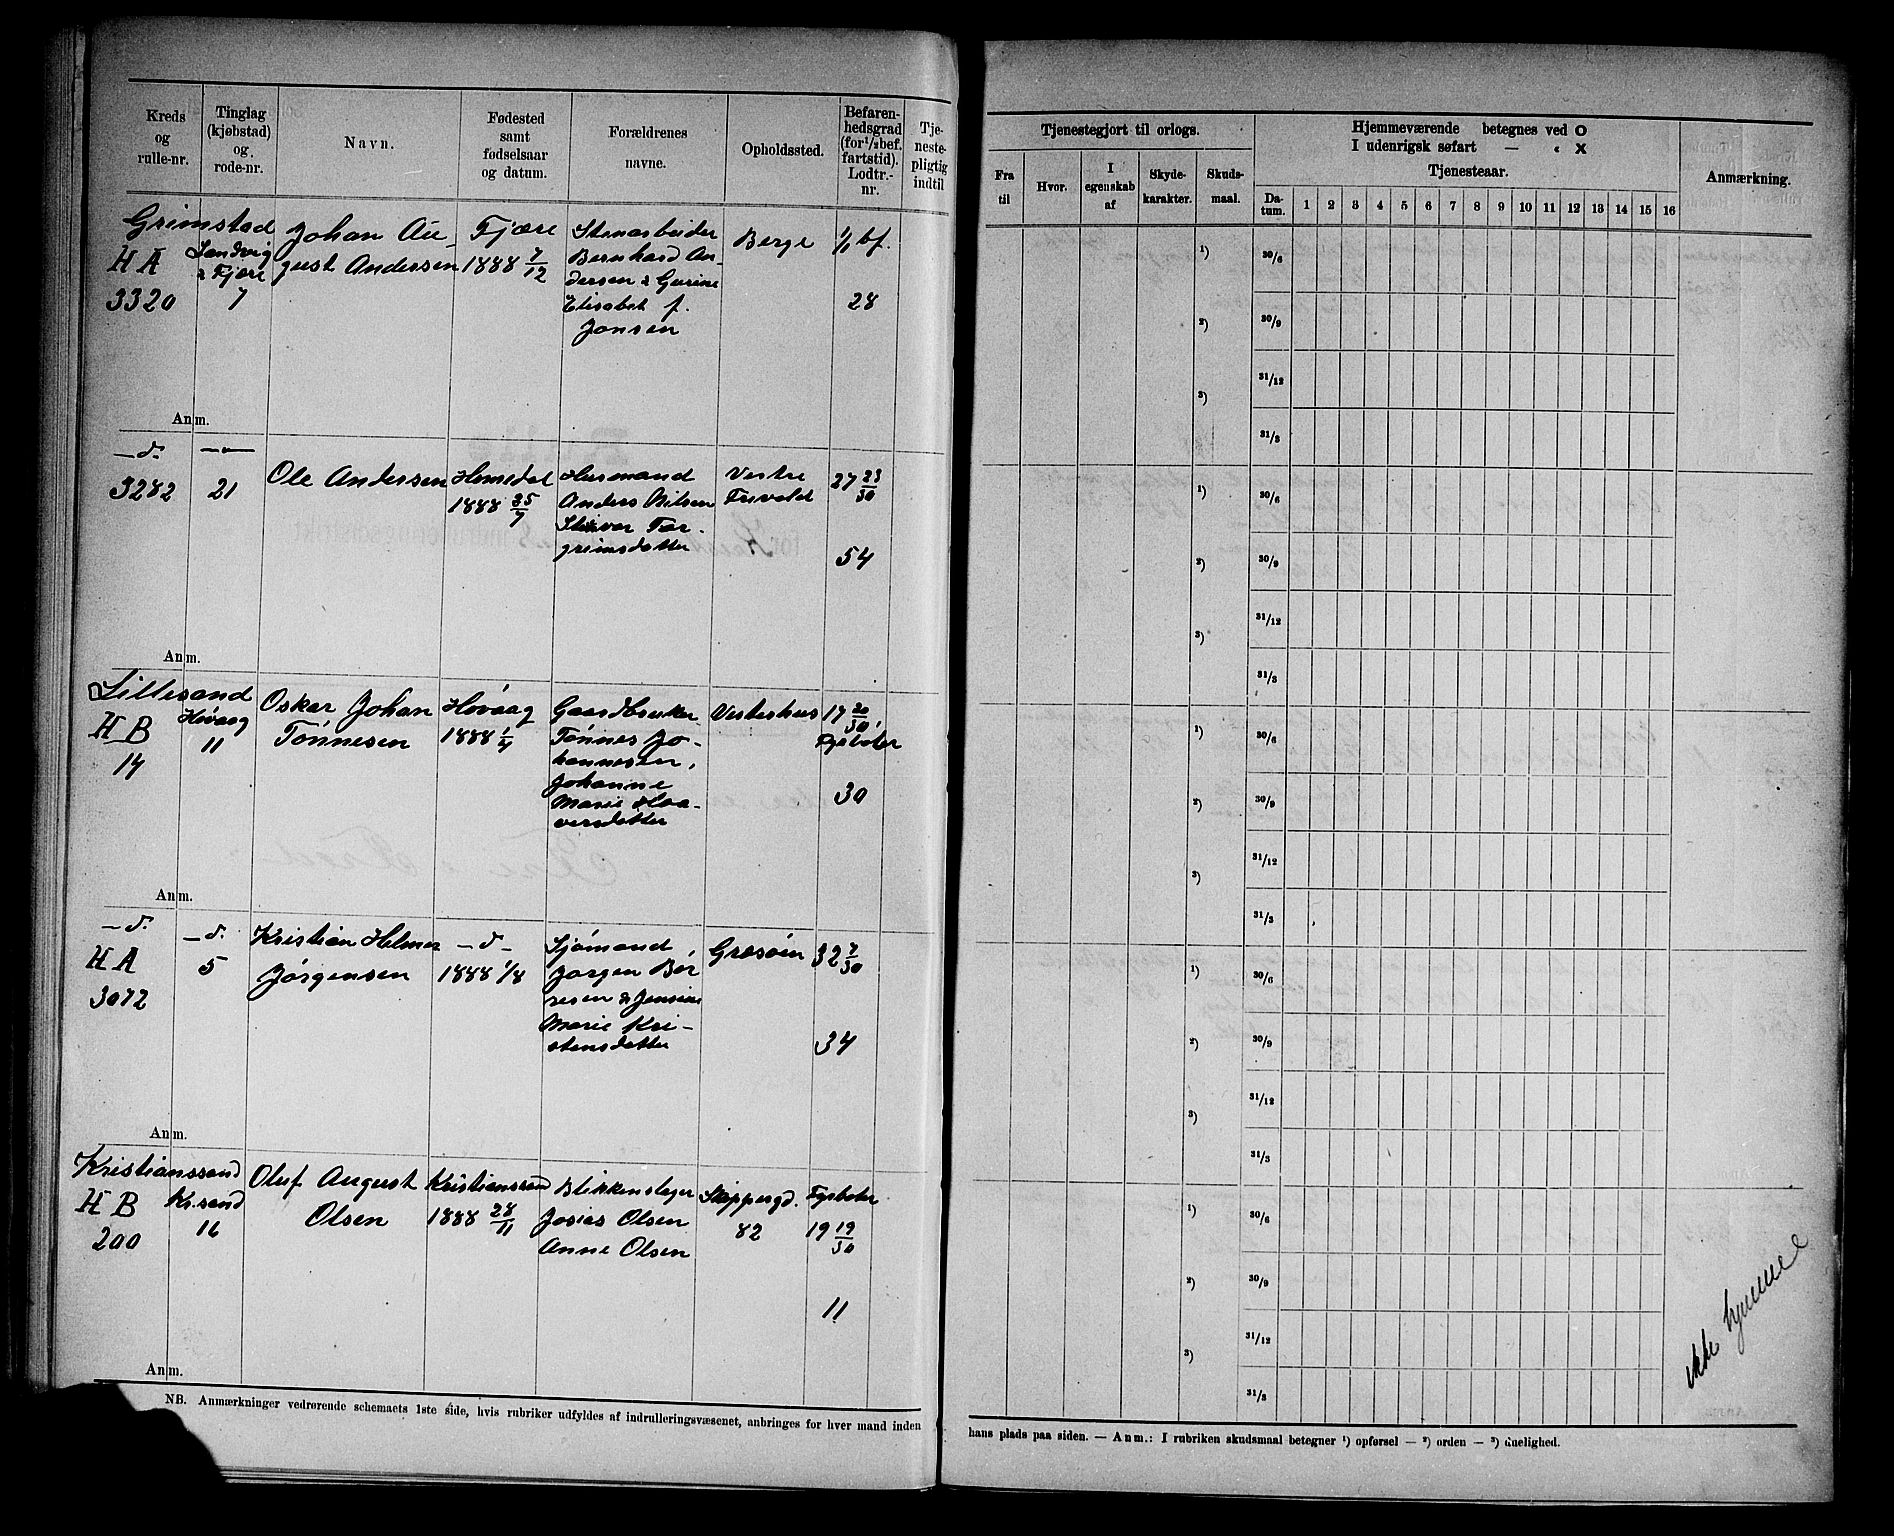 Kreds og rulle-nr.
Tinglag (kjøbstad) og rode-nr.
Navn.
Fødested samt fødselsaar og datum.
Forældrenes navne.
Opholdssted.
Befaren-hedsgrad (for 1/2 bef. fartstid). Lodtr.-nr.
Tje-neste-pligtig indtil
Grimstad
H A
3320
Landvig
& Fjære
7
Johan Au-
gust Andersen
Fjære
1888 7/12
Stenarbeider
Bernhard An-
dersen & Gurine
Elisabet f.
Jonsen
Berge
1/1 bf.
28
Anm.
— d.
3282
— " —
21
Ole Andersen
Homedal
1888 25/7
Husmand
Anders Nilsen
Tor-
grimsdatter
Vestre
Frivold
27 23/30
54
Anm.
Lillesand
H B
14
Høvaag
11
Oskar Johan
Tønnesen
Høvaag
1888 1/4
Gaardbruker
Tønnes Jo-
hannesen,
Johanne
Marie Haa-
versdatter
Vesterhus
17 20/30
Fyrbøter
30
Anm.
— d.
H A
3072
— d.
5
Kristian Helmer
Jørgensen
— d —
1888 1/8
Sjømand
Jørgen Bør
resen & Jensine
Marie Kri-
stensdatter
Grosøen
32 7/30
34
Anm.
Kristianssand
H B
200
Kr.sand
16
Oluf August
Olsen
Kristianssand
1888 28/11
Blikkenslager
Josias Olsen
Anne Olsen
Skippergd.
82
Fyrbøter
19 19/30
11
Anm.
NB. Anmærkninger vedrørende schemaets 1ste side, hvis rubriker udfyldes af indrulleringsvæsenet, anbringes for hver mand inden
Tjenestegjort til orlogs.
Fra til
Hvor.
I egenskab af
Skyde-karakter.
Skuds-maal.
Hjemmeværende betegnes ved O
I udenrigsk søfart — " X
Tjenesteaar.
Da-tum.
1 2 3 4 5 6 7 8 9 10 11 12 13 14 15 16
Anmærkning.
1) 30/6
2) 30/9
3) 31/12
31/3
1) 30/6
2) 30/9
3) 31/12
31/3
1) 30/6
2) 30/9
3) 31/12
31/3
1) 30/6
2) 30/9
3) 31/12
31/3
1) 30/6
2) 30/9
3) 31/12
31/3
ikke hjemme
hans plads paa siden. — Anm.: I rubriken skudsmaal betegner 1) opførsel — 2) orden — 3) duelighed.